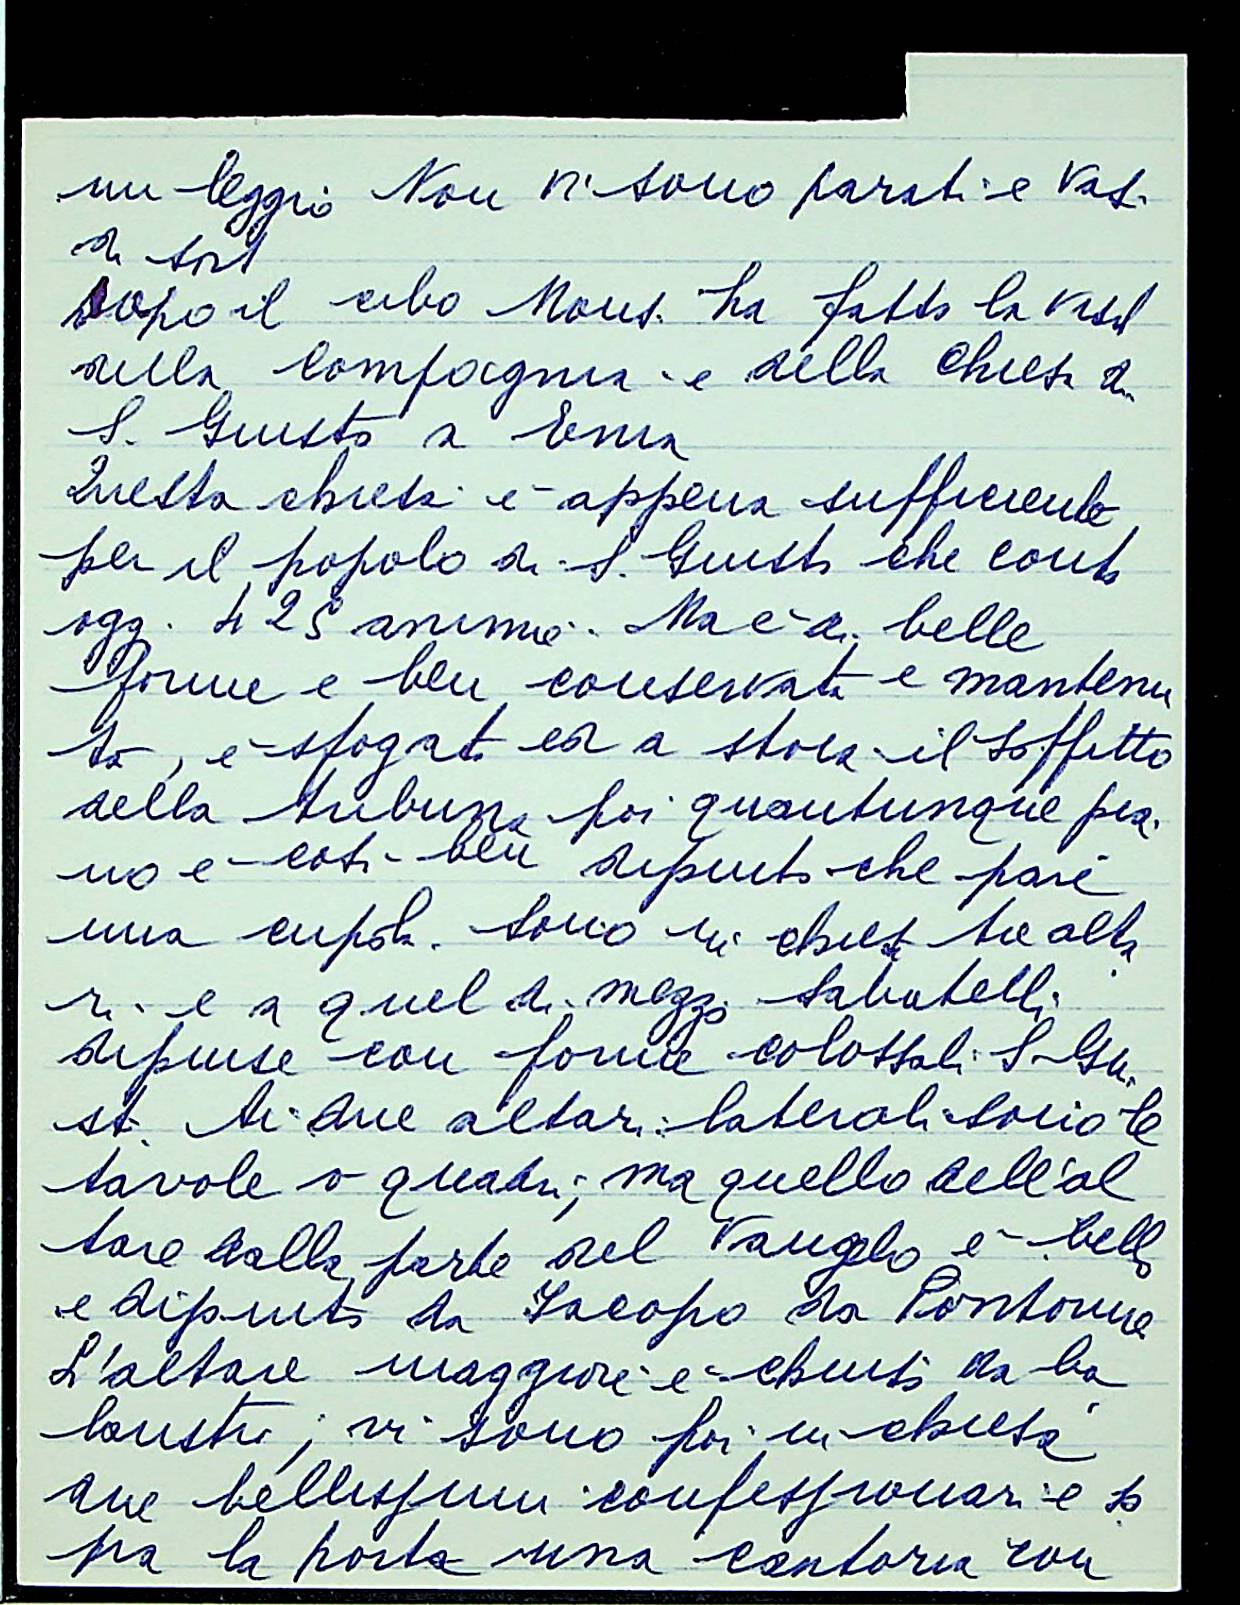 un leggio Non vi sono parati e vasi
di sort
Dopo il cibo Mons. ha fatto la visit
della Compagnia e della Chiesa di
S. Giusto a Ema
Questa chiesa è appena sufficiente
per il popolo di S. Giusto che conta
oggi 425 anime. Ma è di belle
forme e ben conservata e mantenu
ta, è sfogata ed a stoia il soffitto
della tribuna poi quantunque pia
no è così ben dipinto che pare
una cupola. Sono in chiesa tre alta
ri e a quel di mezzo Sabatelli
dipinse con forme colossali S. Giu
sto. Ai due altari laterali sono le
tavole o quadri; ma quello dell'al
tare dalla parte del Vangelo è bello
e dipinto da Jacopo da Pontorme
L'altare maggiore è chiuso da ba
laustri; vi sono poi in chiesa
due bellissimi confessionari e so
pra la porta una cantoria con